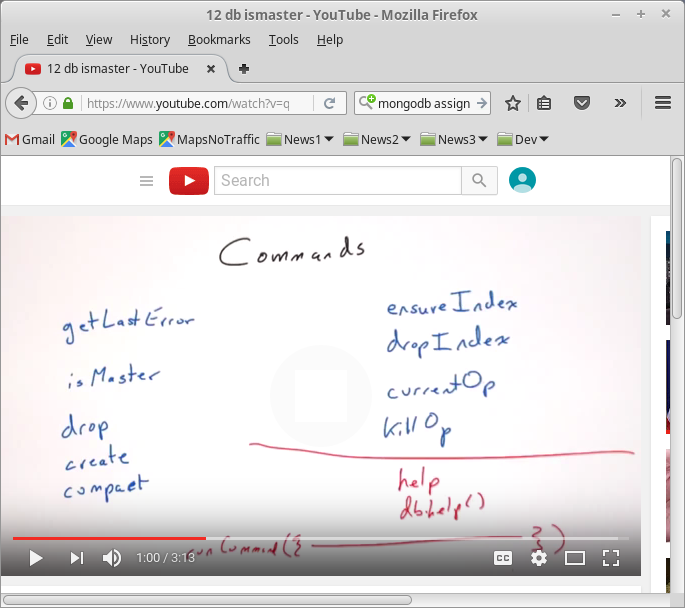 12 db ismaster - YouTube - Mozilla Firefox
File Edit View History Bookmarks Tools Help
12 db ismaster - YouTube
https://www.youtube.com/watch?v=q mongodb assign
Gmail Google Maps MapsNoTraffic News1 News2 News3 Dev
Search
Commands
getLastError
isMaster
drop
create
compact
ensureIndex
dropIndex
currentOp
killOp
help
db.help()
runCommand({ })
1:00 / 3:13 CC